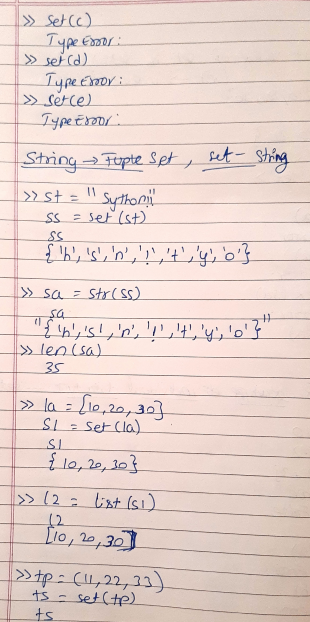 >> set(c)
TypeError:
>> set(d)
TypeError:
>> set(e)
TypeError:
String → Set, set - String
>> st = "Sython!!"
ss = set(st)
ss
{'h','s','n','!','t','y','o'}
>> sa = str(ss)
sa
"{'h','s','n','!','t','y','o'}"
>> len(sa)
35
>> la = [10,20,30]
S1 = set(la)
S1
{10,20,30}
>> l2 = list(s1)
l2
[10,20,30]
>> tp = (11,22,33)
ts = set(tp)
ts